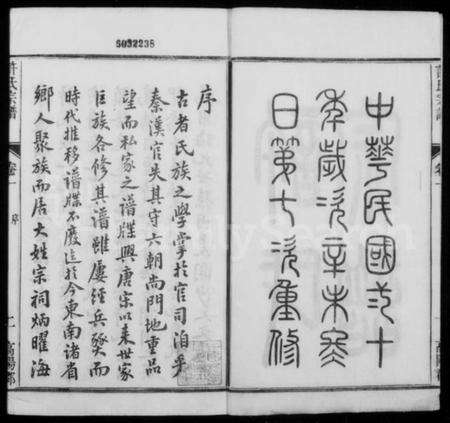 5032236
中華民國弍十
年歲次辛未冬
日第七次重修
序
古者氏族之學掌於官司洎乎
秦漢官失其守六朝尚門地重品
望而私家之譜牒興唐宋以來世家
巨族各修其譜雖屢經兵燹而
時代推移譜牒不廢迄於今東南諸省
鄉人聚族而居大姓宗祠炳曜海
許氏宗譜
卷一
序
高陽郡